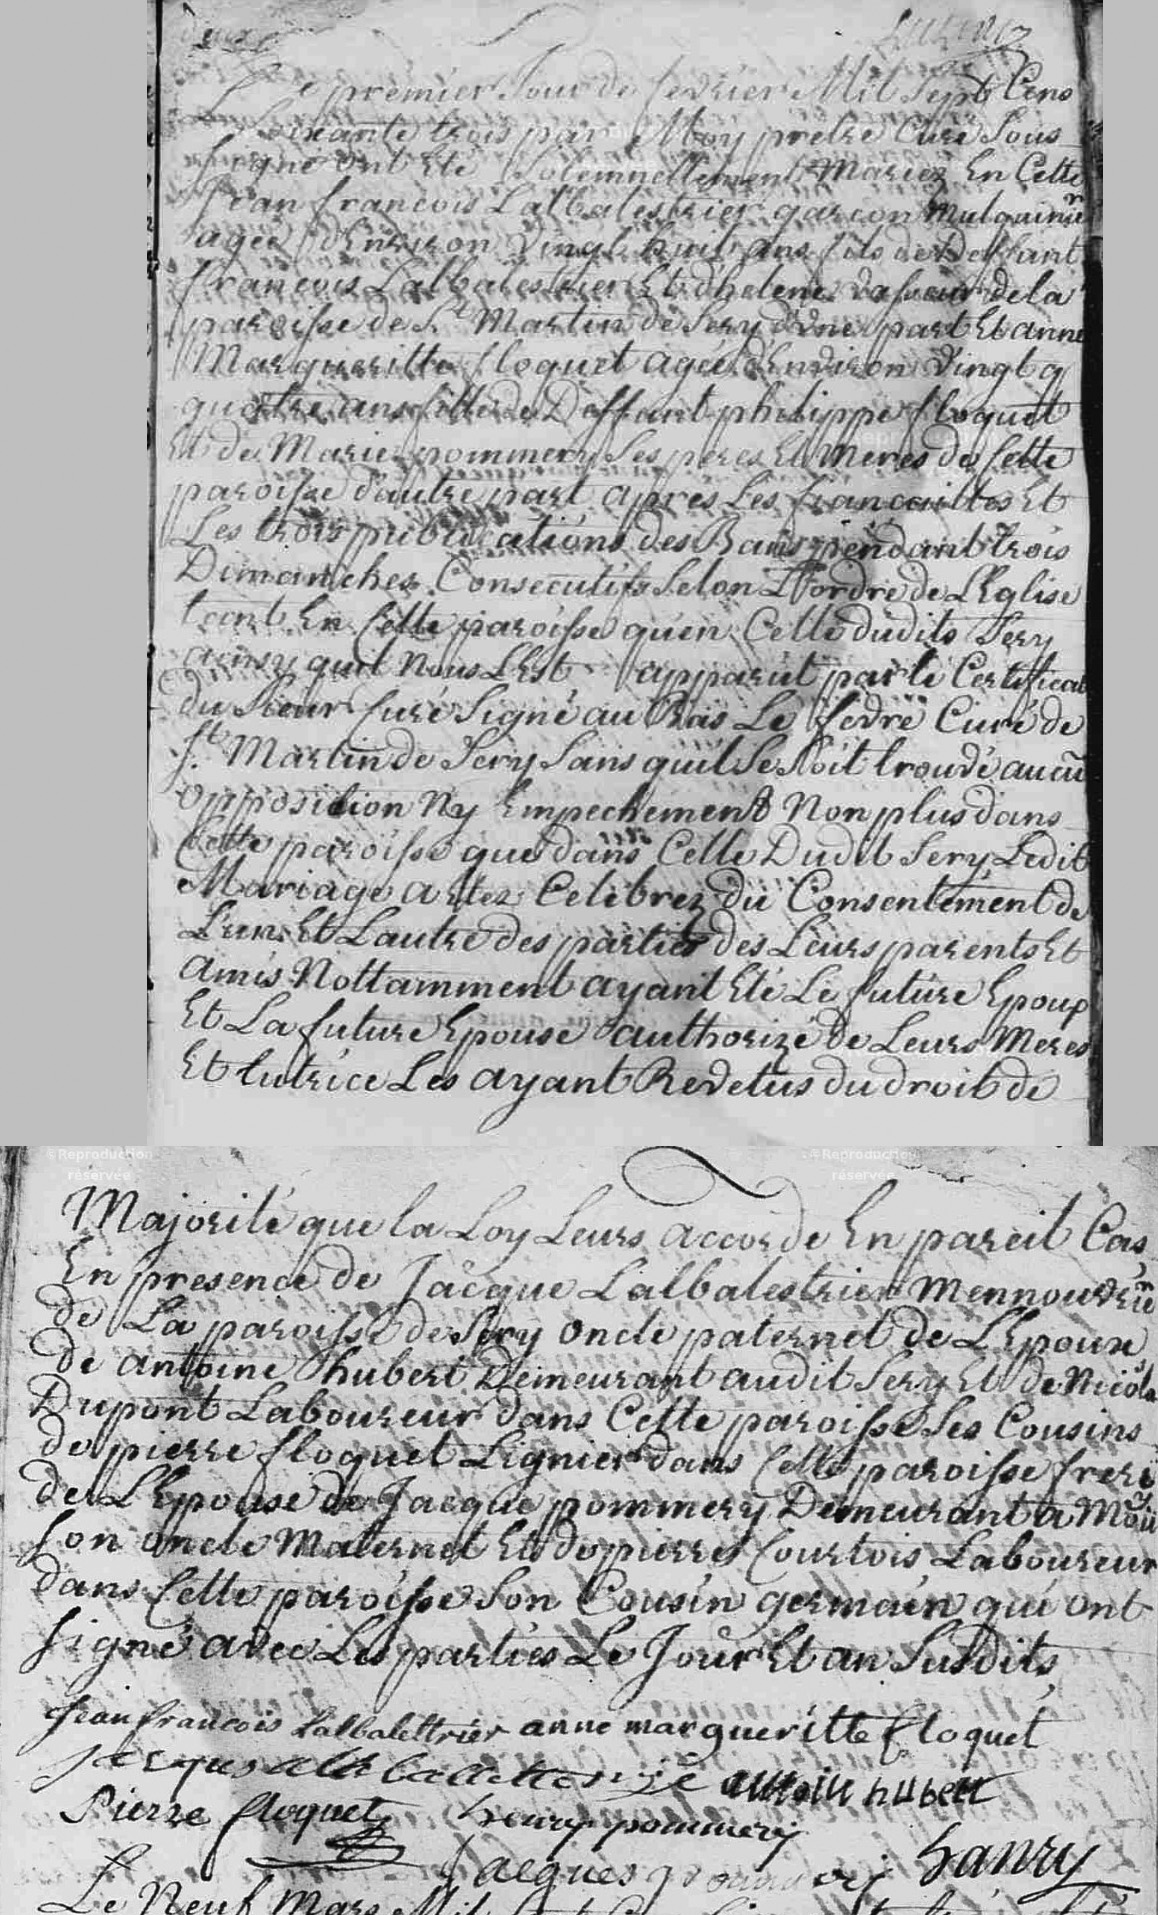 Le premier Jour de fevrier Mil Sept Cens
Soixante trois par Moy pretre Curé Sous
signé ont Eté Solemnellement Mariez En Cette
Jean francois Lalbalestrier garcon Mulquinier
agée d'Environ Vingt huit ans fils de Deffant
francois Lalbalestrier Et d'helene Vasseur de la
paroisse de St Martin de Sery d'Une part Et anne
Margueritte floquet agée d'Environ Vingt q
quattre ans fille de Deffant philippe floquet
Et de Marie pommery Ses peres Et Meres de Cette
paroisse d'autre part apres Les fiancailles Et
Les trois publications des Bans pendant trois
Dimanches Consecutifs Selon L'ordre de L'Eglise
tant En Cette paroisse qu'en Celle dudits Sery
ainsy quil Nous L'Est apparut par le Certificat
du Sieur Curé Signé au Bas Le fevre Curé de
St Martin de Sery Sans quil Se Soit trouvé aucū
opposition Ny Empechement Non plus dans
Cette paroisse que dans Celle Dudit Sery Ledit
Mariage a Etez Celebrez du Consentement de
L'un Et Lautre des parties des Leurs parents Et
amis Nottamment ayant Eté Le future Epoux
Et La future Epouse authorizé de Leurs Meres
Et tutrice Les ayant Revetus du droit de
©Reproduction réservée ©Reproduction réservée
Majorité que la Loy Leurs accorde En pareil Cas
En presence de Jacque Lalbalestrier Mennouvrier
de La paroisse de Sery oncle paternel de L'Epoux
de antoine hubert Demeurant audit Sery Et de Nicolas
Dupont Laboureur dans Cette paroisse Ses Cousins
de pierre floquet Lignier dans Cette paroisse frere
de L'Epouse de Jacque pommery Demeurant a
Son oncle Maternel Et de pierre Courtois Laboureur
dans Cette paroisse Son Cousin germain qui ont
signé avec Les parties Le Jour Et an Susdits
Jean francois Lalbalettrier anne margueritte floquet
antoin hubert
Pierre floquet henry pommery
Jacques pommery hanry
Le Neuf Mars Mil